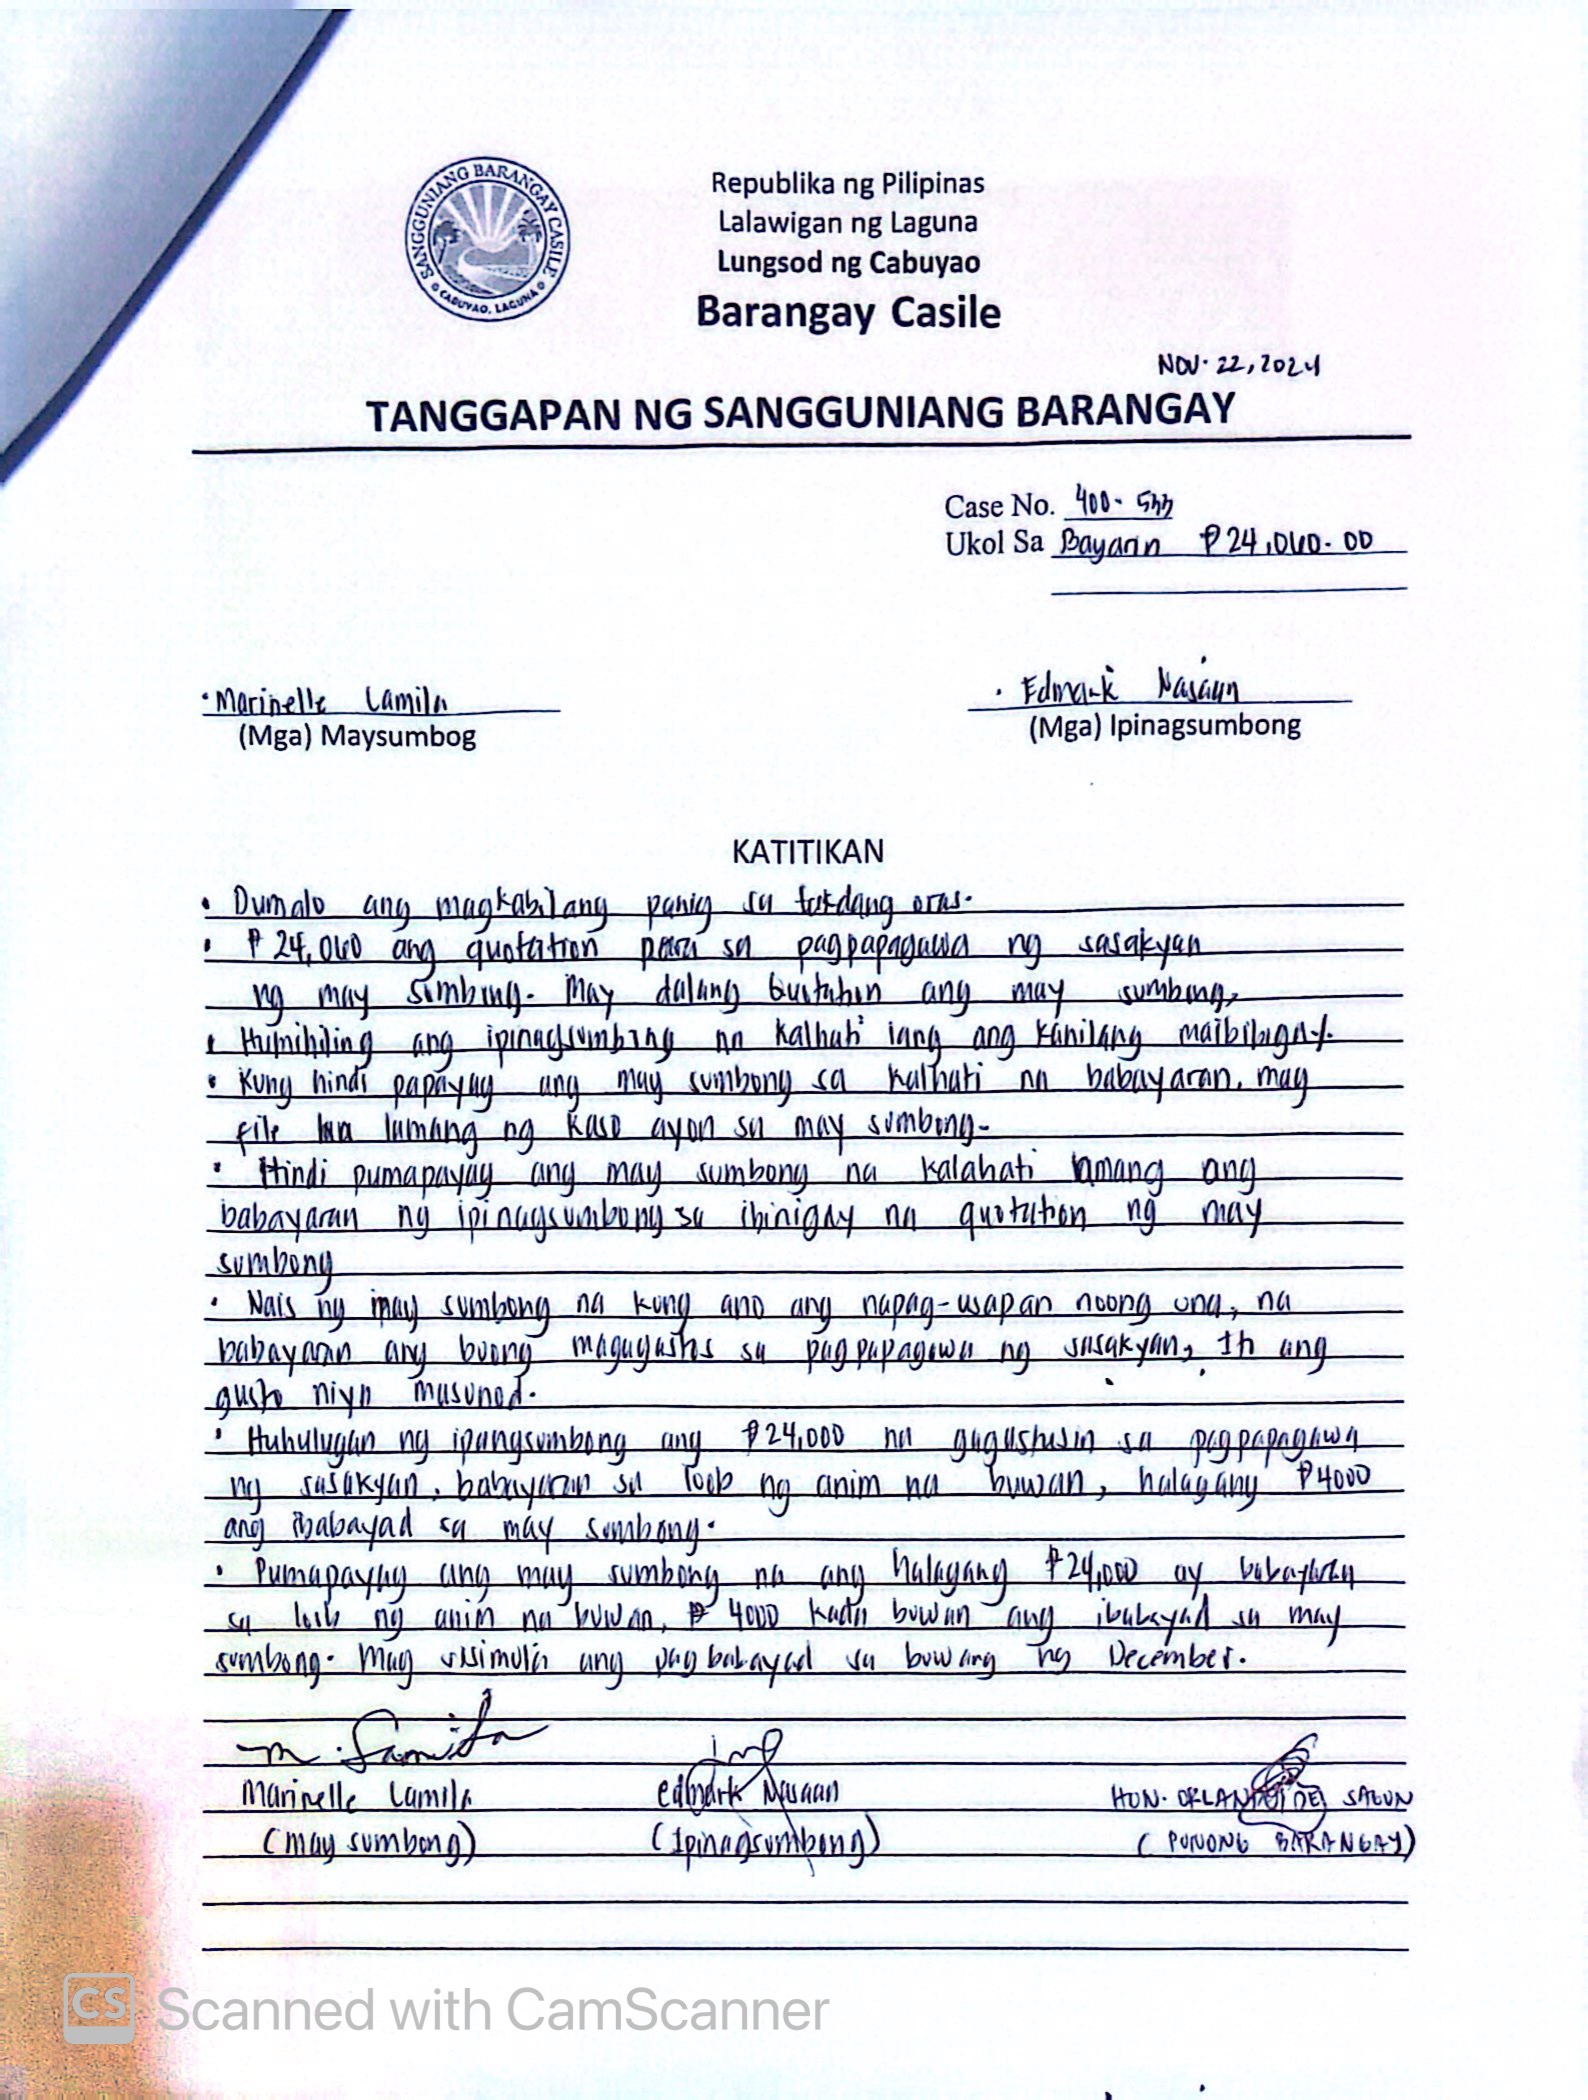 SANGGUNIANG BARANGAY CASILE
CABUYAO, LAGUNA
Republika ng Pilipinas
Lalawigan ng Laguna
Lungsod ng Cabuyao
Barangay Casile
NOV. 22, 2024
TANGGAPAN NG SANGGUNIANG BARANGAY
Case No. 400-533
Ukol Sa Bayarin ₱24,060.00
• Marinelle Lamila
(Mga) Maysumbog
• Edmark Nasaan
(Mga) Ipinagsumbong
KATITIKAN
• Dumalo ang magkabilang panig sa takdang oras.
• ₱24,060 ang quotation para sa pagpapagawa ng sasakyan
ng may sumbong. May dalang ang may sumbong,
• Humihiling ang ipinagsumbong na kalhati lang ang kanilang maibibigay.
• Kung hindi papayag ang may sumbong sa kalhati na babayaran, mag
file lumang ng kaso ayon sa may sumbong-
• Hindi pumapayag ang may sumbong na kalahati lamang ang
babayaran ng ipinagsumbong sa ibinigay na quotation ng may
sumbong
• Nais ng may sumbong na kung ano ang napag-usapan noong una, na
babayaran ang buong magagastos sa pagpapagawa ng sasakyan, Ito ang
gusto niya masunod.
• Huhulugan ng ipangsumbong ang ₱24,000 na gagastusin sa pagpapagawa
ng sasakyan, babayaran sa loob ng anim na buwan, halagang ₱4000
ang ibabayad sa may sumbong.
• Pumapayag ang may sumbong na ang halagang ₱24,000 ay babayaran
sa loob ng anim na buwan, ₱ 4000 kada buwan ang ibabayad sa may
sumbong. Mag sisimula ang pagbabayad sa buwang ng December.
M. Lamila
Marinelle Lamila
(may sumbong)
edmark Nasaan
(Ipinagsumbong)
HON. SALUN
(PUNONG BARANGAY)
CS Scanned with CamScanner